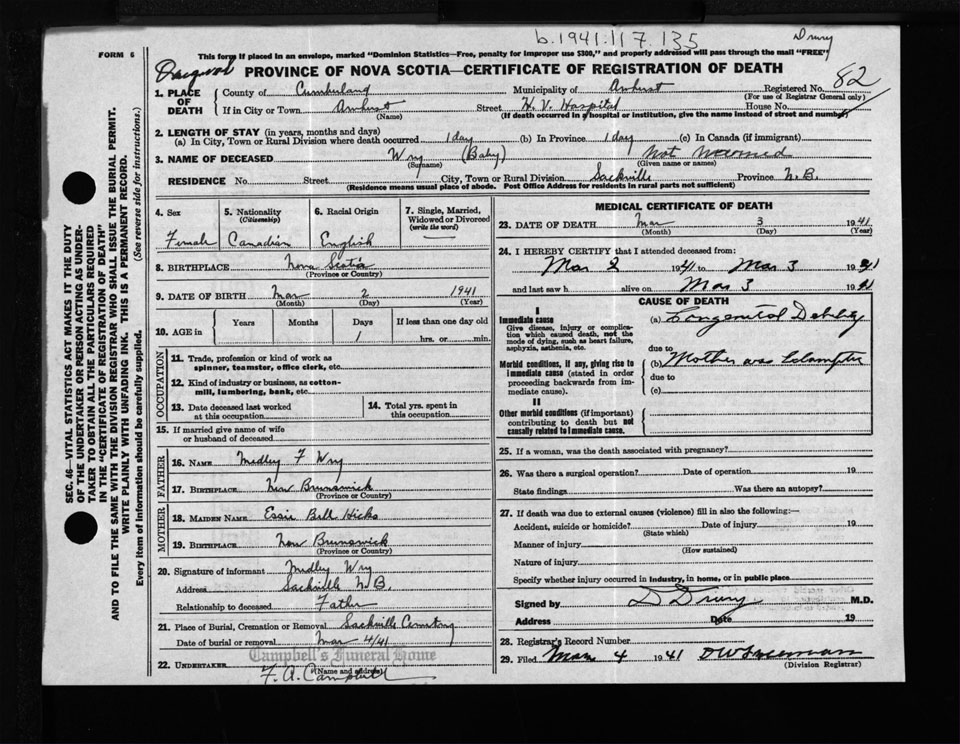 b.1941.117.135
Drury
FORM 6
This form if placed in an envelope, marked "Dominion Statistics—Free, penalty for improper use $300," and properly addressed will pass through the mail "FREE"
PROVINCE OF NOVA SCOTIA—CERTIFICATE OF REGISTRATION OF DEATH
82
1. PLACE OF DEATH
County of Cumberland Municipality of Amherst Registered No.
(For use of Registrar General only)
If in City or Town Amherst Street H. V. Hospital House No.
(Name) (If death occurred in a hospital or institution, give the name instead of street and number)
2. LENGTH OF STAY (in years, months and days)
(a) In City, Town or Rural Division where death occurred 1 day (b) In Province 1 day (c) In Canada (if immigrant)
3. NAME OF DECEASED Wry (Baby) Not Named
(Surname) (Given name or names)
RESIDENCE No. Street City, Town or Rural Division Sackville Province N.B.
(Residence means usual place of abode. Post Office Address for residents in rural parts not sufficient)
4. Sex
Female
5. Nationality
(Citizenship)
Canadian
6. Racial Origin
English
7. Single, Married,
Widowed or Divorced
(write the word)
8. BIRTHPLACE Nova Scotia
(Province or Country)
9. DATE OF BIRTH Mar 2 1941
(Month) (Day) (Year)
10. AGE in
Years Months Days If less than one day old
1 hrs. or min.
OCCUPATION
11. Trade, profession or kind of work as
spinner, teamster, office clerk, etc.
12. Kind of industry or business, as cotton-
mill, lumbering, bank, etc.
13. Date deceased last worked
at this occupation
14. Total yrs. spent in
this occupation
15. If married give name of wife
or husband of deceased
FATHER
16. NAME Medley F Wry
17. BIRTHPLACE New Brunswick
(Province or Country)
MOTHER
18. MAIDEN NAME Essie Bell Hicks
19. BIRTHPLACE New Brunswick
(Province or Country)
20. Signature of informant Medley Wry
Address Sackville N.B.
Relationship to deceased Father
21. Place of Burial, Cremation or Removal Sackville Cemetery
Date of burial or removal Mar 4/41
Campbell's Funeral Home
22. UNDERTAKER F. A. Campbell
(Name and address)
MEDICAL CERTIFICATE OF DEATH
23. DATE OF DEATH Mar 3 1941
(Month) (Day) (Year)
24. I HEREBY CERTIFY that I attended deceased from:
Mar 2 1941 to Mar 3 1941
and last saw h alive on Mar 3 1941
CAUSE OF DEATH
I
Immediate cause
Give disease, injury or complica-
tion which caused death, not the
mode of dying, such as heart failure,
asphyxia, asthenia, etc.
(a) Congenital Debility
due to
Morbid conditions, if any, giving rise to
immediate cause (stated in order
proceeding backwards from im-
mediate cause).
(b) Mother was Eclamptic
due to
(c)
II
Other morbid conditions (if important)
contributing to death but not
causally related to immediate cause.
25. If a woman, was the death associated with pregnancy?
26. Was there a surgical operation? Date of operation 19
State findings Was there an autopsy?
27. If death was due to external causes (violence) fill in also the following:—
Accident, suicide or homicide? Date of injury 19
(State which)
Manner of injury
(How sustained)
Nature of injury
Specify whether injury occurred in industry, in home, or in public place
Signed by D Drury M.D.
Address Date 19
28. Registrar's Record Number
29. Filed Mar 4 1941 DW Freeman
(Division Registrar)
SEC. 46—VITAL STATISTICS ACT MAKES IT THE DUTY
OF THE UNDERTAKER OR PERSON ACTING AS UNDER-
TAKER TO OBTAIN ALL THE PARTICULARS REQUIRED
IN THE "CERTIFICATE OF REGISTRATION OF DEATH"
AND TO FILE THE SAME WITH THE DIVISION REGISTRAR WHO SHALL ISSUE THE BURIAL PERMIT.
WRITE PLAINLY WITH UNFADING INK. THIS IS A PERMANENT RECORD.
Every item of information should be carefully supplied. (See reverse side for instructions.)